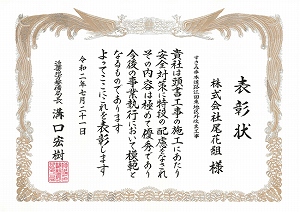 表彰状
株式会社尾花組 様
貴社は頭書工事の施工にあたり
安全対策に特段の配慮をなされ
その内容は極めて優秀であり
今後の事業執行において模範と
なるものであります
よってここにこれを表彰します
令和二年七月二十一日
溝口宏樹